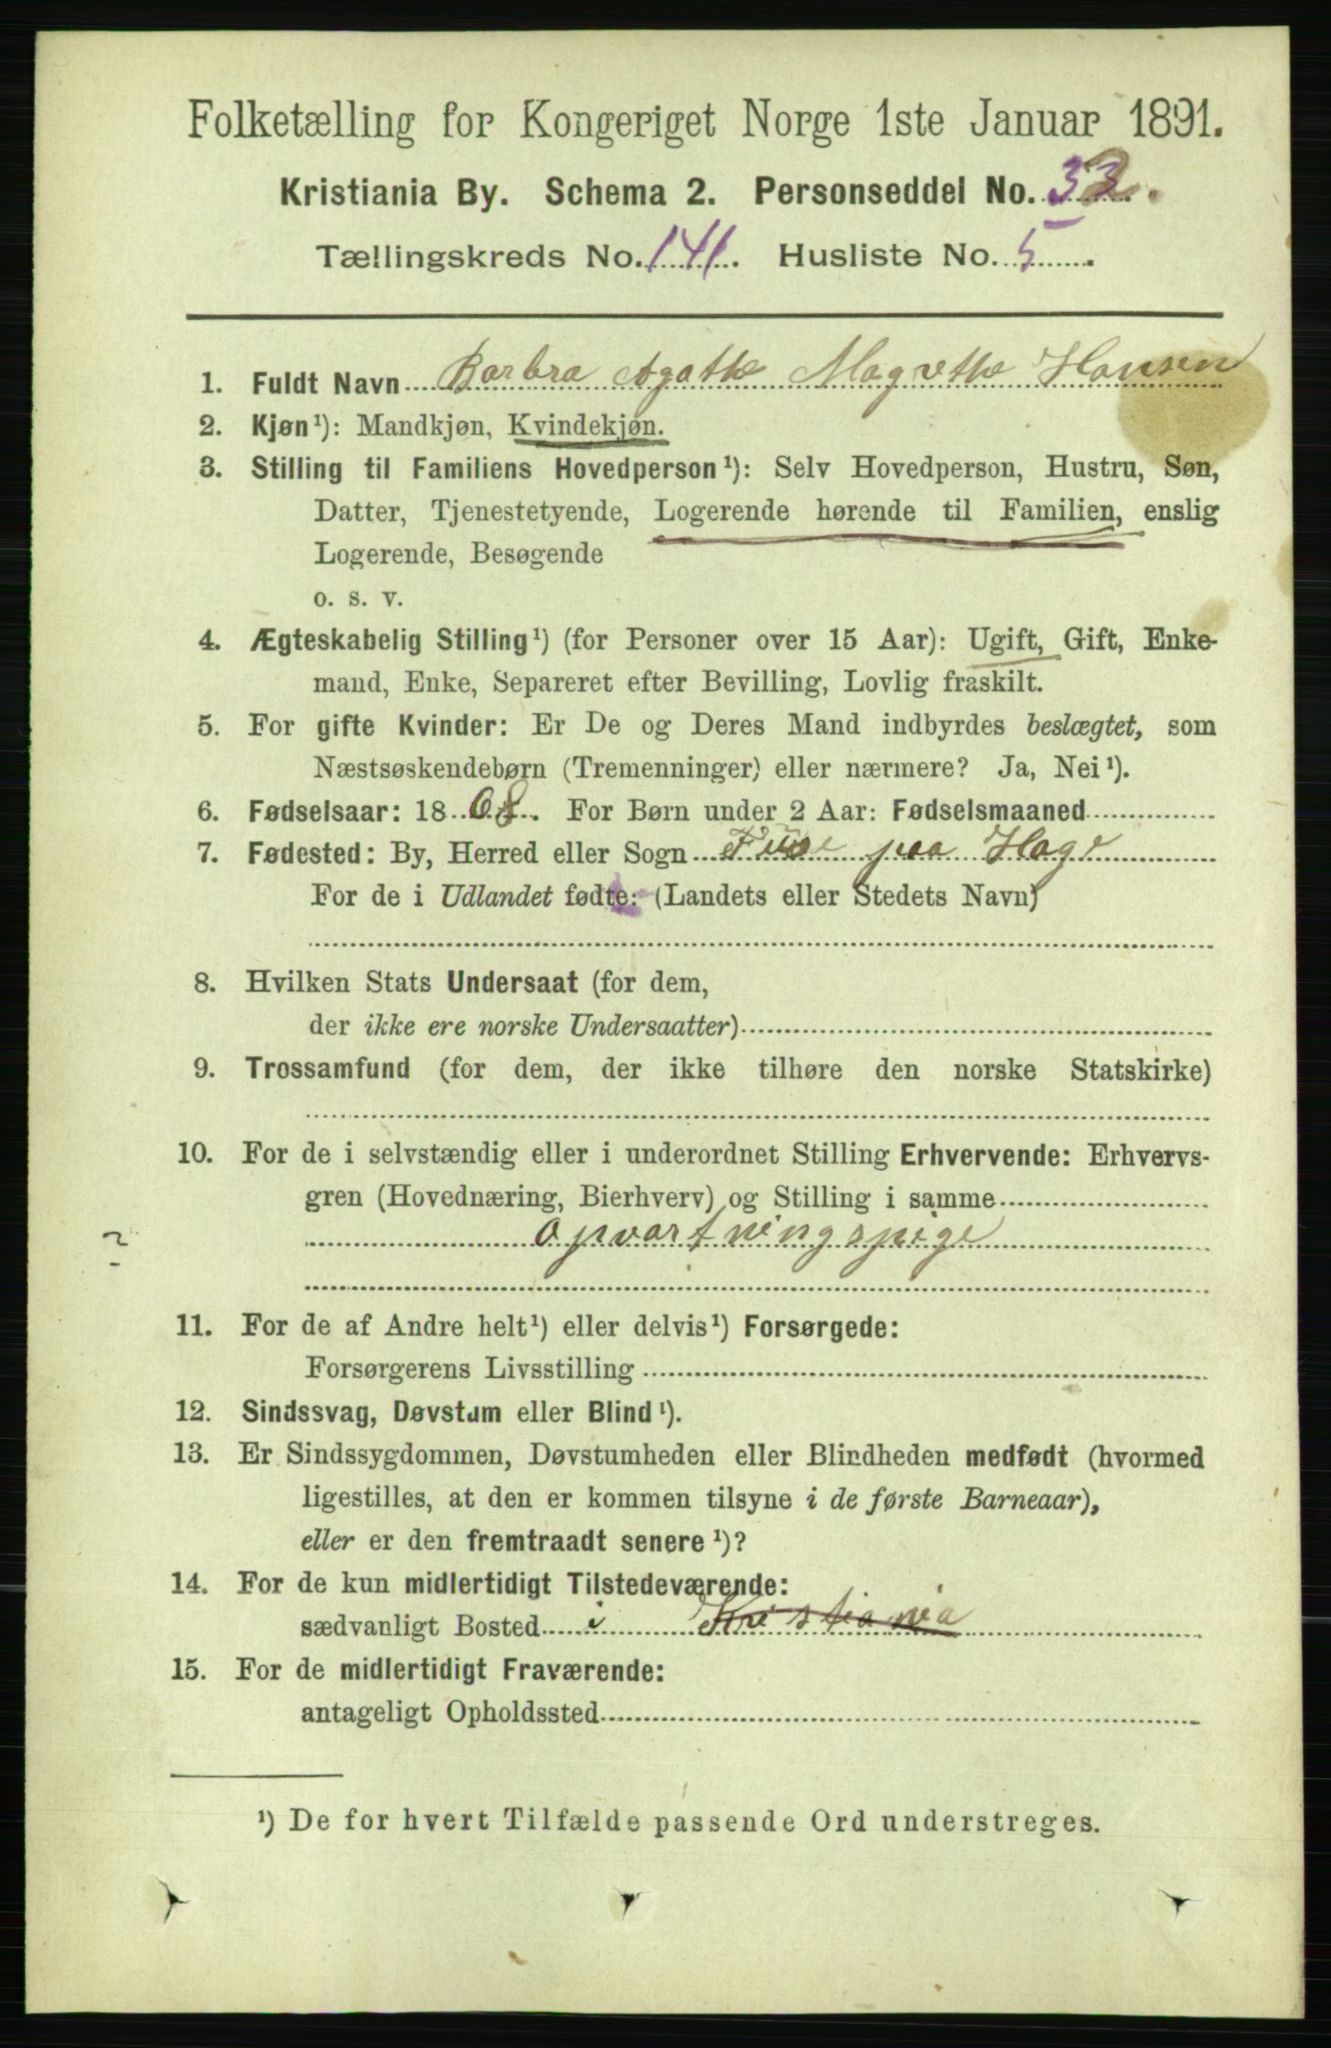 Folketælling for Kongeriget Norge 1ste Januar 1891.
Kristiania By. Schema 2. Personseddel No. 32.
Tællingskreds No. 141. Husliste No. 5.
1. Fuldt Navn Barbra Agathe Magrethe Hansen
2. Kjøn¹): Mandkjøn, Kvindekjøn.
3. Stilling til Familiens Hovedperson¹): Selv Hovedperson, Hustru, Søn,
Datter, Tjenestetyende, Logerende hørende til Familien, enslig
Logerende, Besøgende
o. s. v.
4. Ægteskabelig Stilling¹) (for Personer over 15 Aar): Ugift, Gift, Enke-
mand, Enke, Separeret efter Bevilling, Lovlig fraskilt.
5. For gifte Kvinder: Er De og Deres Mand indbyrdes beslægtet, som
Næstsøskendebørn (Tremenninger) eller nærmere? Ja, Nei¹).
6. Fødselsaar: 1868. For Børn under 2 Aar: Fødselsmaaned
7. Fødested: By, Herred eller Sogn paa
For de i Udlandet fødte: (Landets eller Stedets Navn)
8. Hvilken Stats Undersaat (for dem,
der ikke ere norske Undersaatter)
9. Trossamfund (for dem, der ikke tilhøre den norske Statskirke)
10. For de i selvstændig eller i underordnet Stilling Erhvervende: Erhvervs-
gren (Hovednæring, Bierhverv) og Stilling i samme
opvartningspige
11. For de af Andre helt¹) eller delvis¹) Forsørgede:
Forsørgerens Livsstilling
12. Sindssvag, Døvstum eller Blind¹).
13. Er Sindssygdommen, Døvstumheden eller Blindheden medfødt (hvormed
ligestilles, at den er kommen tilsyne i de første Barneaar),
eller er den fremtraadt senere¹)?
14. For de kun midlertidigt Tilstedeværende:
sædvanligt Bosted i Kristiania
15. For de midlertidigt Fraværende:
antageligt Opholdssted
¹) De for hvert Tilfælde passende Ord understreges.